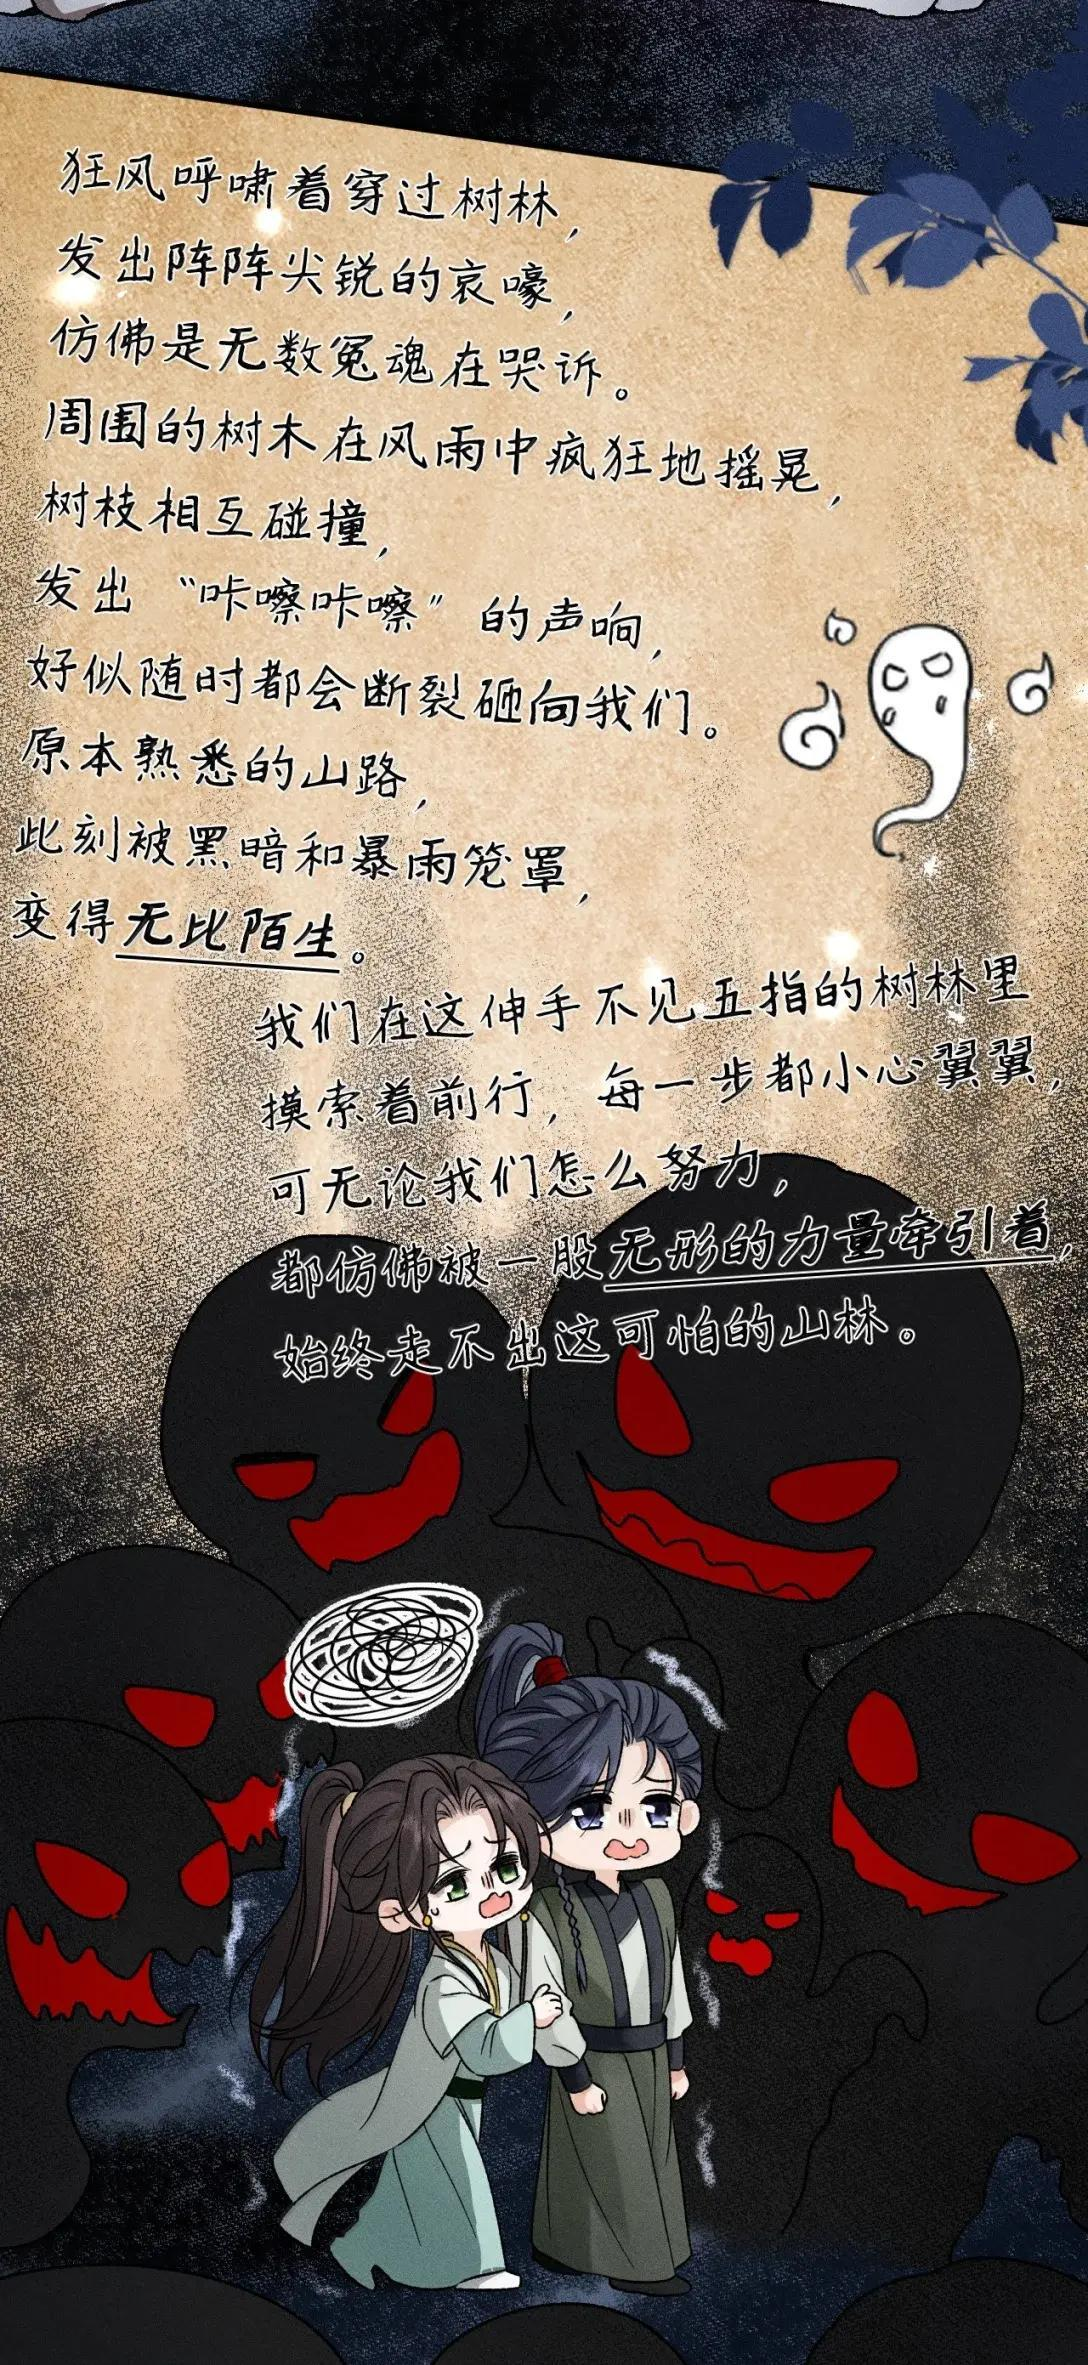 狂风呼啸着穿过树林，
发出阵阵尖锐的哀嚎，
仿佛是无数冤魂在哭诉。
周围的树木在风雨中疯狂地摇晃，
树枝相互碰撞，
发出“咔嚓咔嚓”的声响，
好似随时都会断裂砸向我们。
原本熟悉的山路，
此刻被黑暗和暴雨笼罩，
变得无比陌生。
我们在这伸手不见五指的树林里
摸索着前行，每一步都小心翼翼，
可无论我们怎么努力，
都仿佛被一股无形的力量牵引着，
始终走不出这可怕的山林。